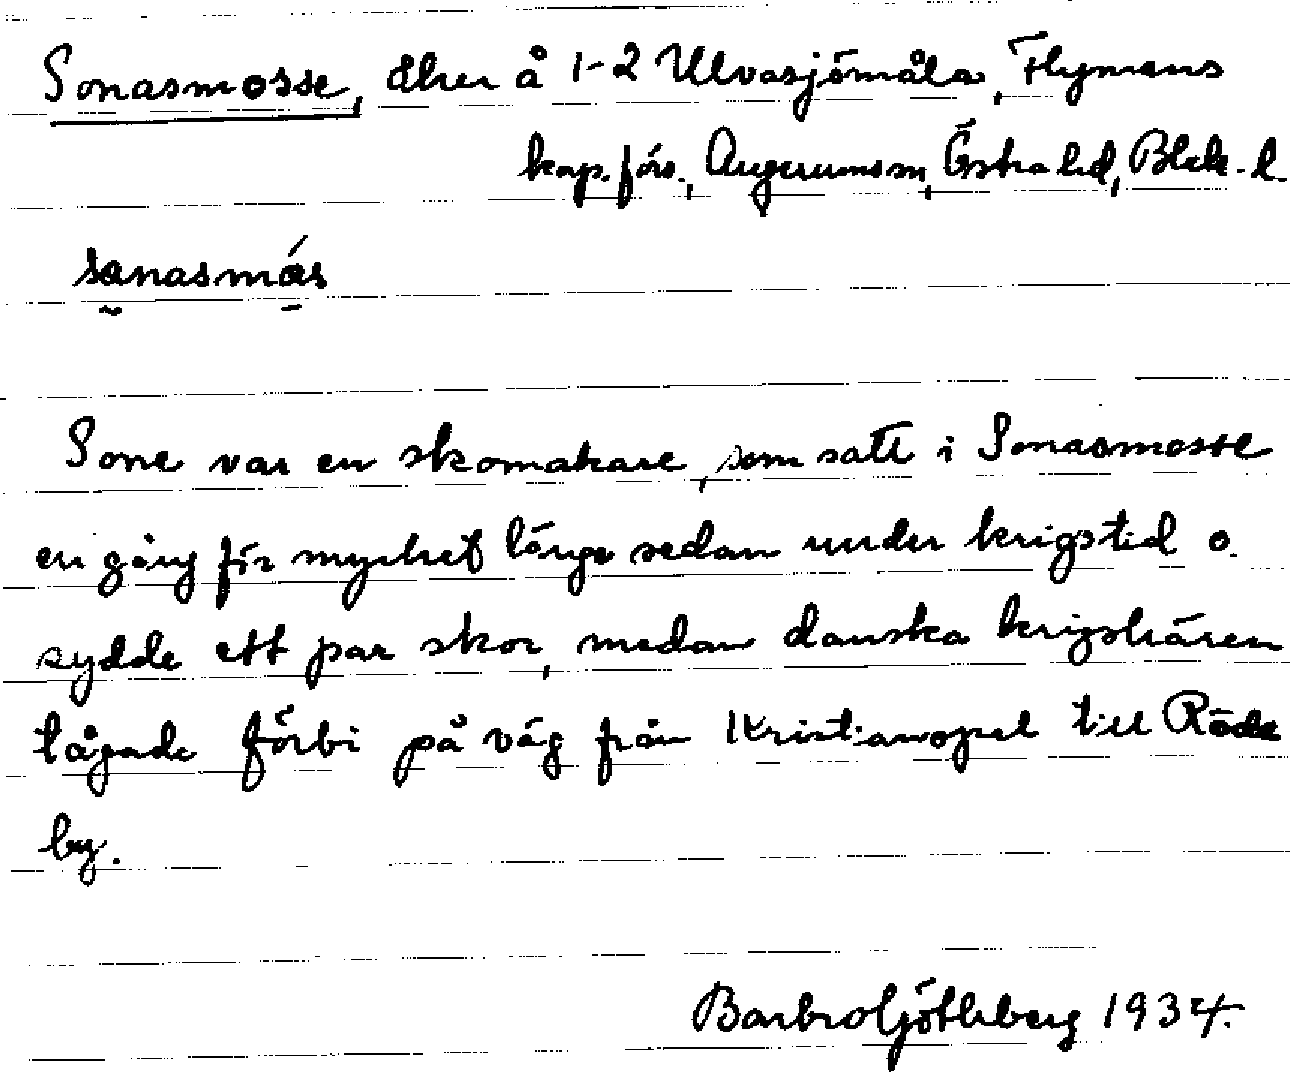 Sonasmosse, åker å 1-2 Ulvasjömåla, Flymens
kap. förs., Augerumssn, Östra hd, Blek. l.
sɑnasmós
Sone var en skomakare, som satt i Sonasmosse
en gång för mycket länge sedan under krigstid o.
sydde ett par skor, medan danska krigshären
tågade förbi på väg från Kristianopel till Röde
by.
Barbro Götlberg 1934.